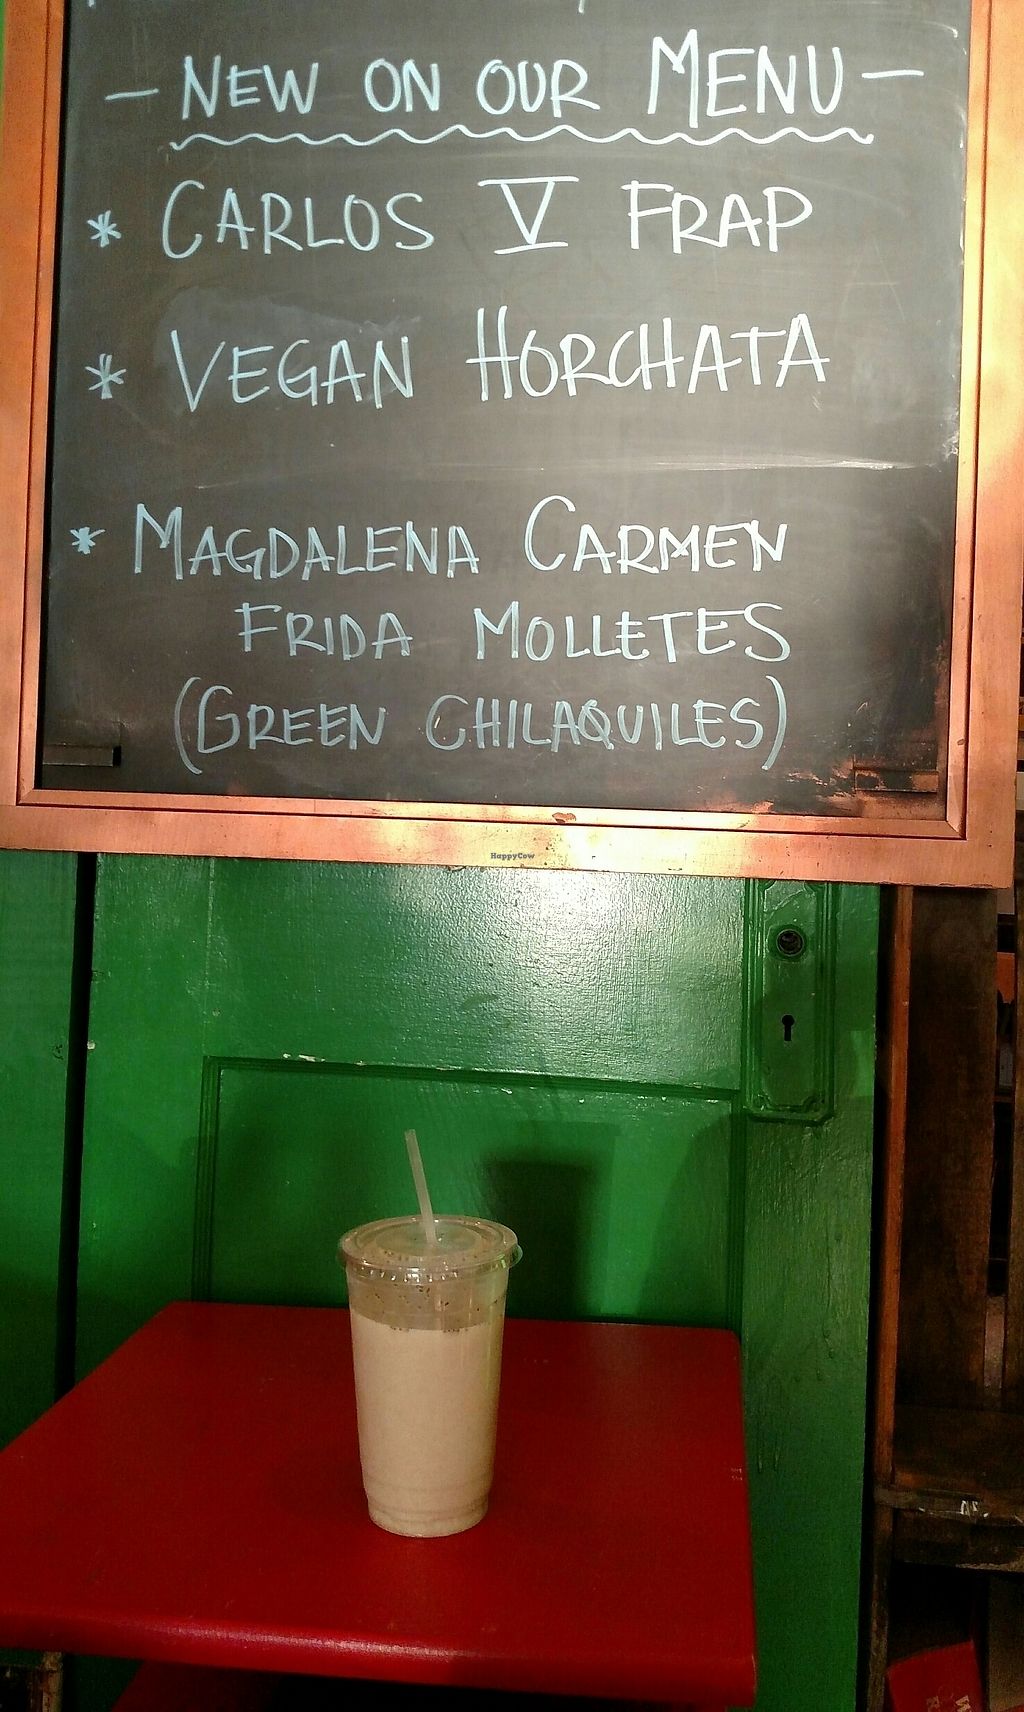 - NEW ON OUR MENU -
* CARLOS V FRAP
* VEGAN HORCHATA
* MAGDALENA CARMEN
FRIDA MOLLETES
(GREEN CHILAQUILES)
HappyCow